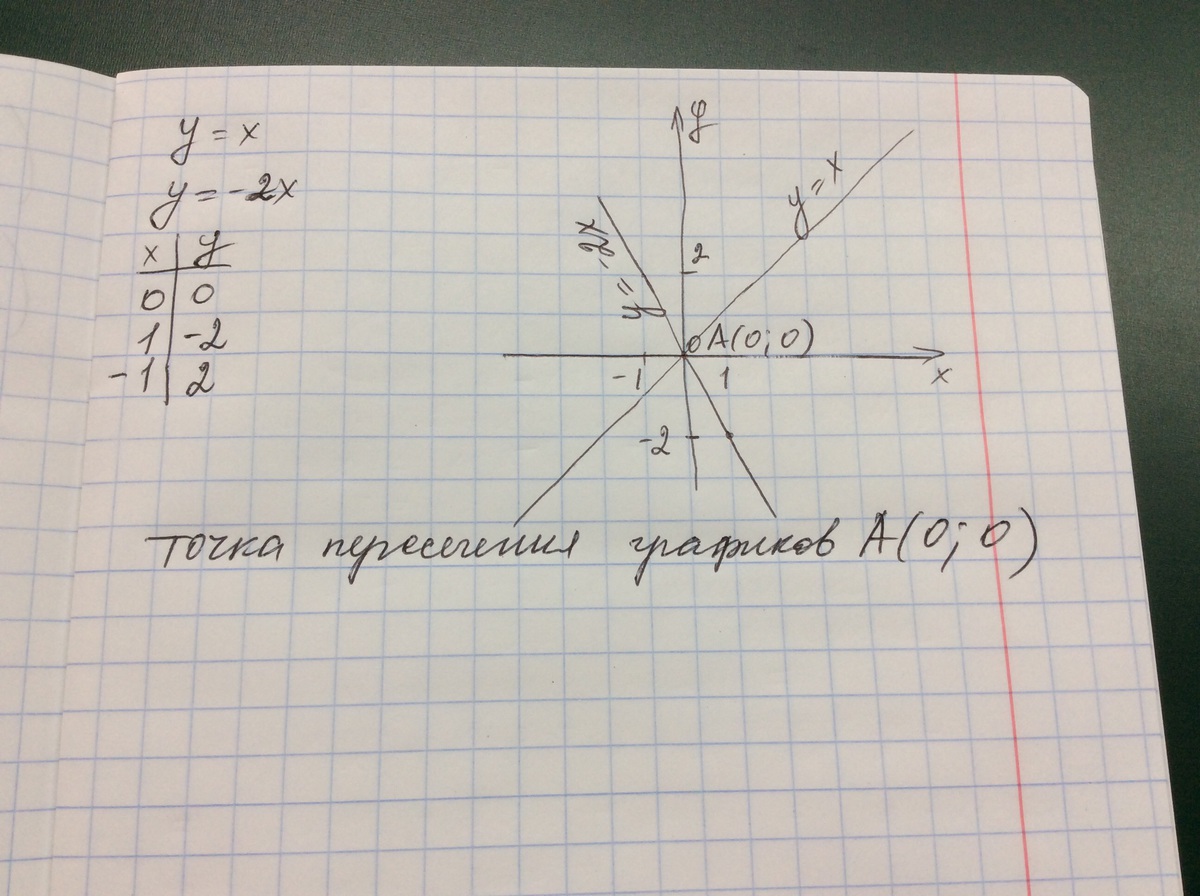 y = x
y = -2x
x | y
0 | 0
1 | -2
-1 | 2
y
y = x
y = -2x
2
0 A(0; 0)
-1
1
x
-2
точка пересечения графиков A(0; 0)